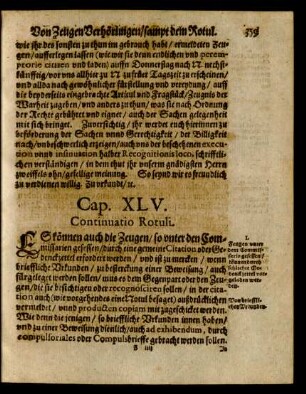 Von Zeugen Verhörungen/sampt dem Rotul. 359
wie ihr des sonsten zu thun im gebrauch habt / ermeldeten Zeu-
gen/aufferlegen lassen (wie wir sie denn endlichen vnd perem-
ptorie citiren vnd laden) auffn Donnerstag nach N nechst-
künfftig/vor vns allhier zu N zu früer Tagszeit zu erscheinen/
vnd alda nach gewöhnlicher fürstellung vnd vereydung / auff
die beyderseits eingebrachte Articul vnd Fragstück/Zeugnis der
Warheit zugeben/vnd anders zu thun/was sie nach Ordnung
der Rechte gebühret vnd eignet / auch der Sachen gelegenheit
mit sich bringet. Zuversichtig / ihr werdet euch hierinnen zu
beförderung der Sachen vnnd Gerechtigkeit / der Billigkeit
nach/vnbeschwerlich erzeigen/auch vns der beschehenen execu-
tion vnnd insinuation halber Recognitionis loco, schrifftli-
chen verständigen / in dem thut ihr vnserm gnädigsten Herrn
zweiffels ohn/gefellige meinung. So seynd wir es freundlich
zu verdienen willig. Zu vrkunde / ꝛc.
Cap. XLV.
Continuatio Rotuli.
ES können auch die Zeugen / so vnter den Com-
missarien gesessen/durch eine gemeine Citation oder Ge-
denckzettel erfordert werden / vnd ist zu mercken / wenn
brieffliche Vrkunden / zu besterckung einer Beweisung / auch
fürgelegt werden sollen / muß es dem Gegenpart oder den Zeu-
gen/die sie besichtigen oder recognosciren sollen / in der cita-
tion auch (wie vorgehendes eine Notul besaget) ausdrücklichen
vermeldet / vnnd producten copiam mit zugeschicket werden.
Wie denn die jenigen / so brieffliche Vrkunden innen haben/
vnd zu einer Beweisung dienlich/auch ad exhibendum, durch
compulsoriales oder Compulsbrieffe gebracht werden sollen.
1.
Zeugen vnter
dem Commis-
sario gesessen/
Von brieffli-
chen Vrkunden.